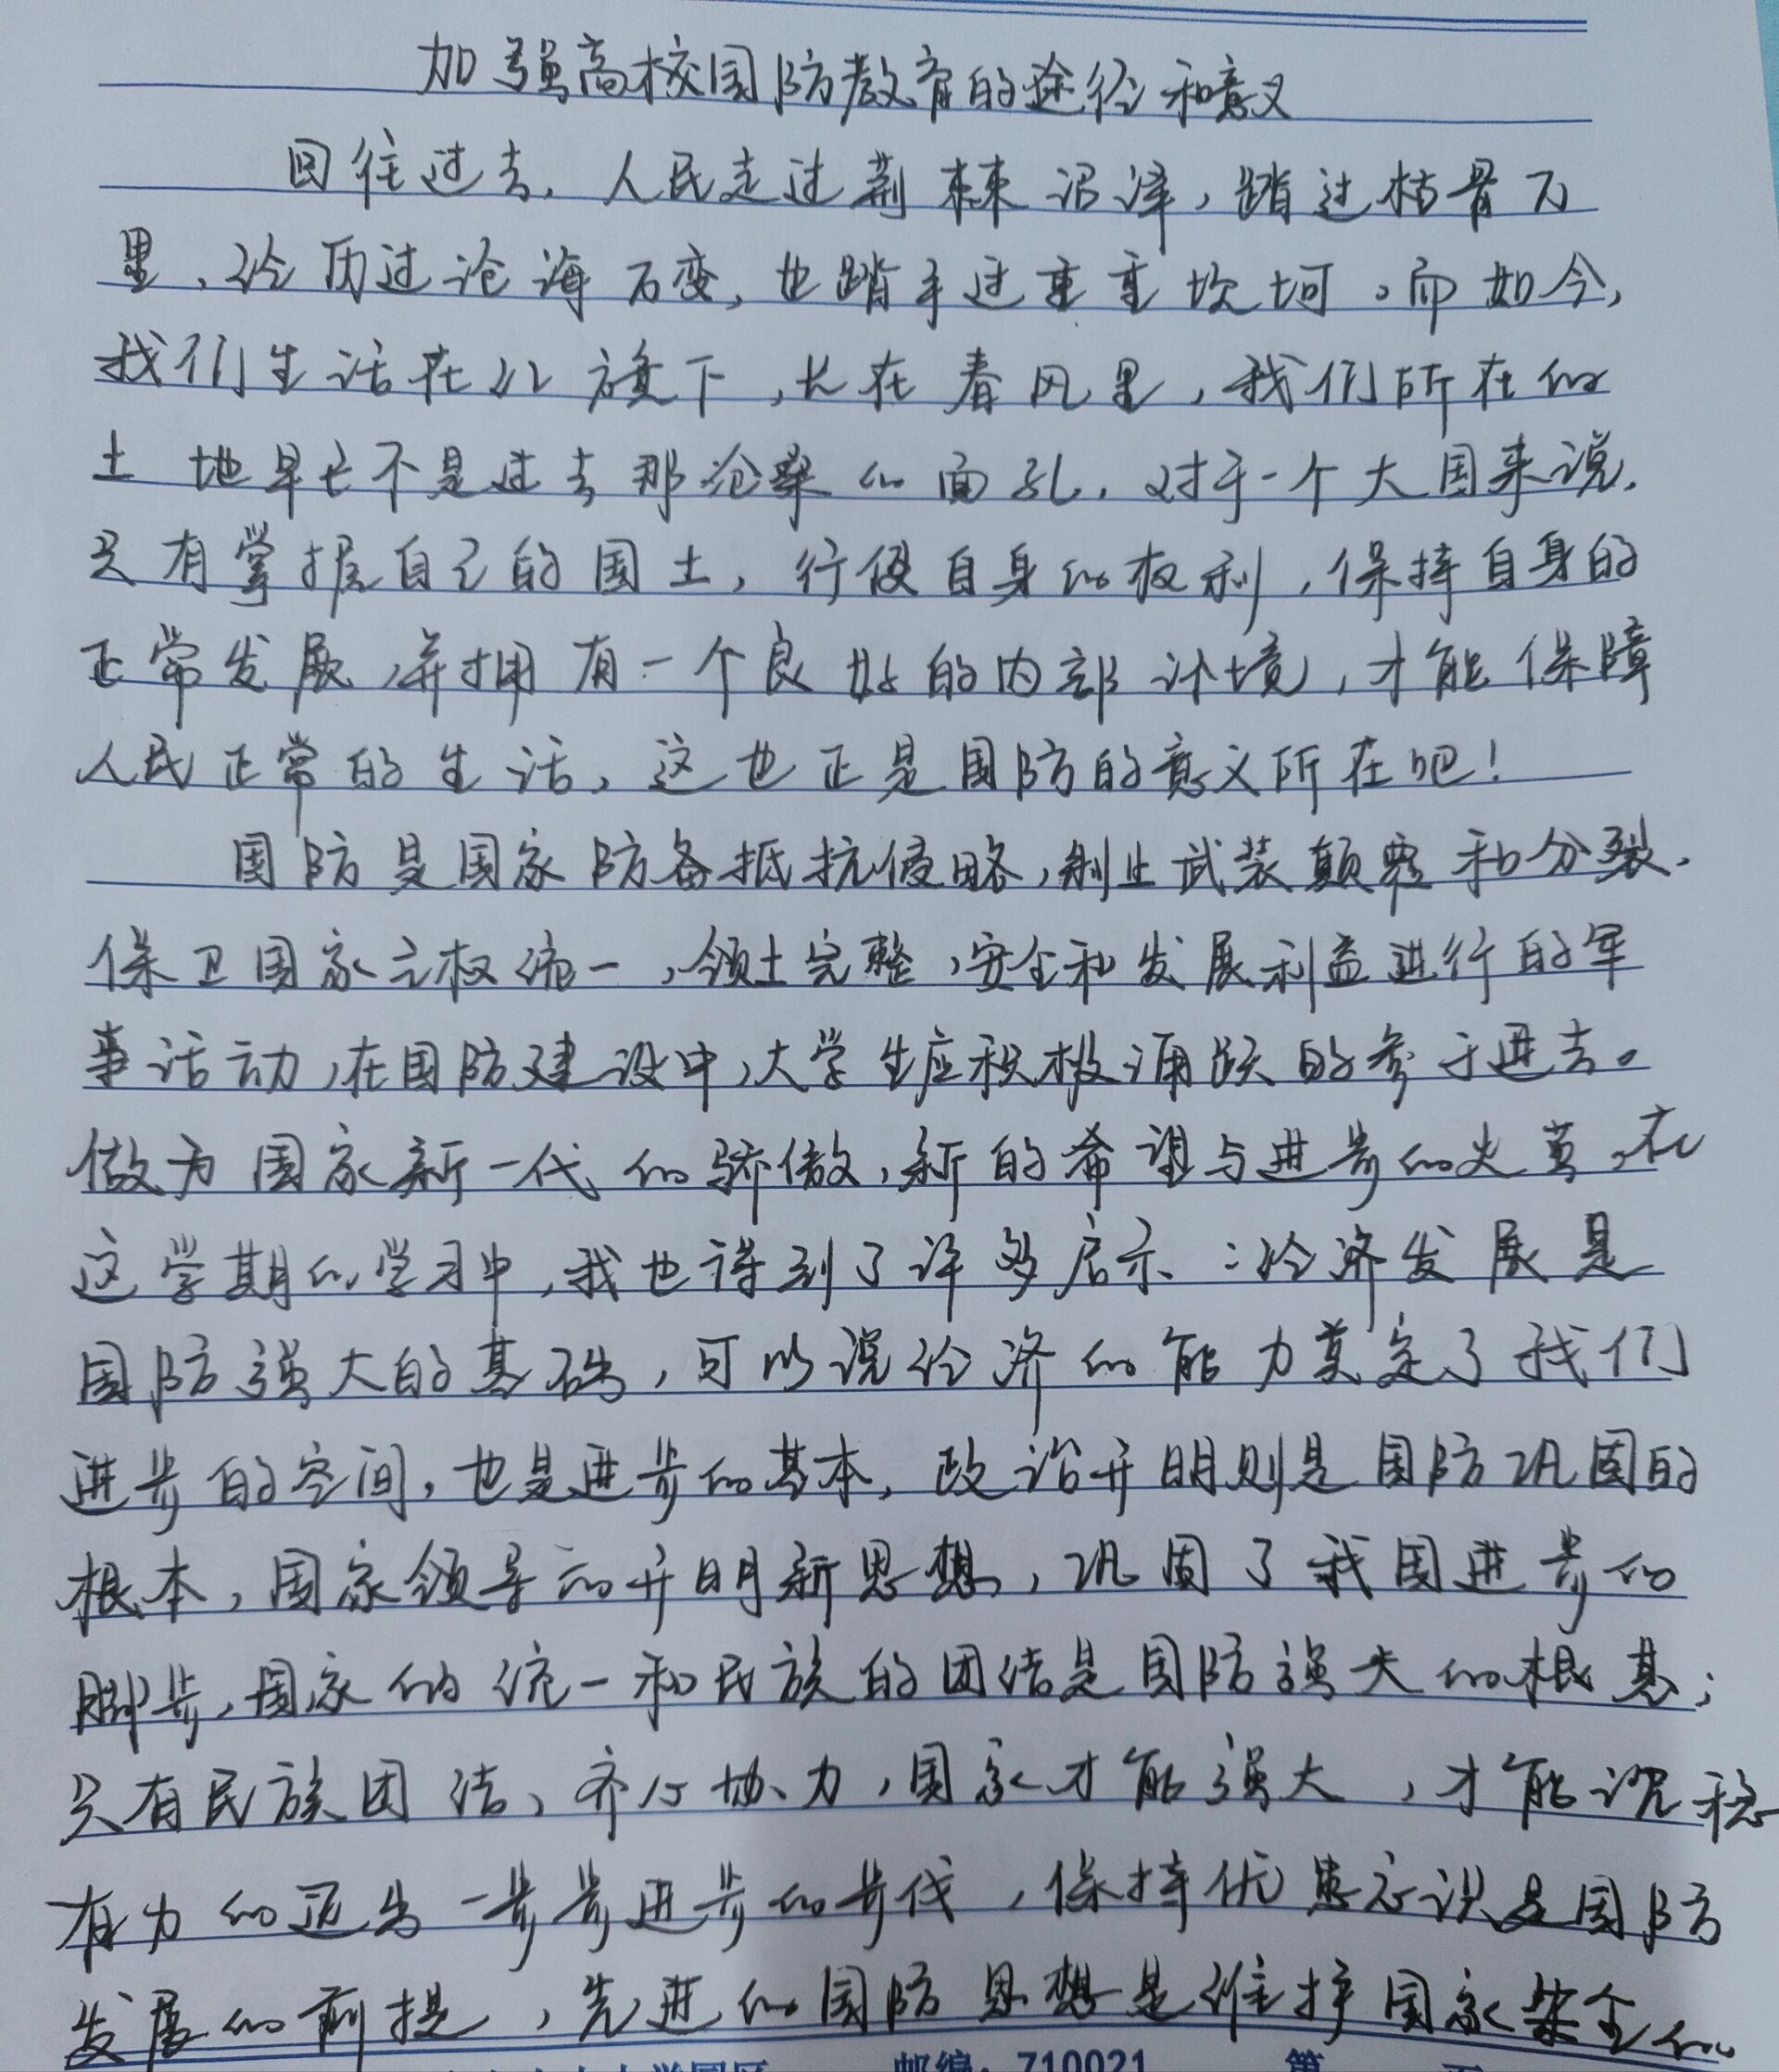 加强高校国防教育的途径和意义
回往过去,人民走过荆棘沼泽,踏过枯骨万
里,经历过沧海百变,也踏平过重重坎坷。而如今,
我们生活在红旗下,长在春风里,我们所在的
土地早已不是过去那沧桑的面孔,对于一个大国来说,
只有掌握自己的国土,行使自身的权利,保持自身的
正常发展,并拥有一个良好的内部环境,才能保障
人民正常的生活,这也正是国防的意义所在吧!
国防是国家防备抵抗侵略,制止武装颠覆和分裂,
保卫国家主权统一,领土完整,安全和发展利益进行的军
事活动,在国防建设中,大学生应积极涌跃的参于进去。
做为国家新一代的骄傲,新的希望与进步的火苗,在
这学期的学习中,我也得到了许多启示:经济发展是
国防强大的基础,可以说经济的能力奠定了我们
进步的空间,也是进步的基本,政治开明则是国防巩固的
根本,国家领导的开明新思想,巩固了我国进步的
脚步,国家的统一和民族的团结是国防强大的根基;
只有民族团结、齐心协力,国家才能强大,才能沉稳
有力的迈出一步步进步的步伐,保持优患意识是国防
发展的前提,先进的国防思想是维护国家安全的
邮编:710021 第